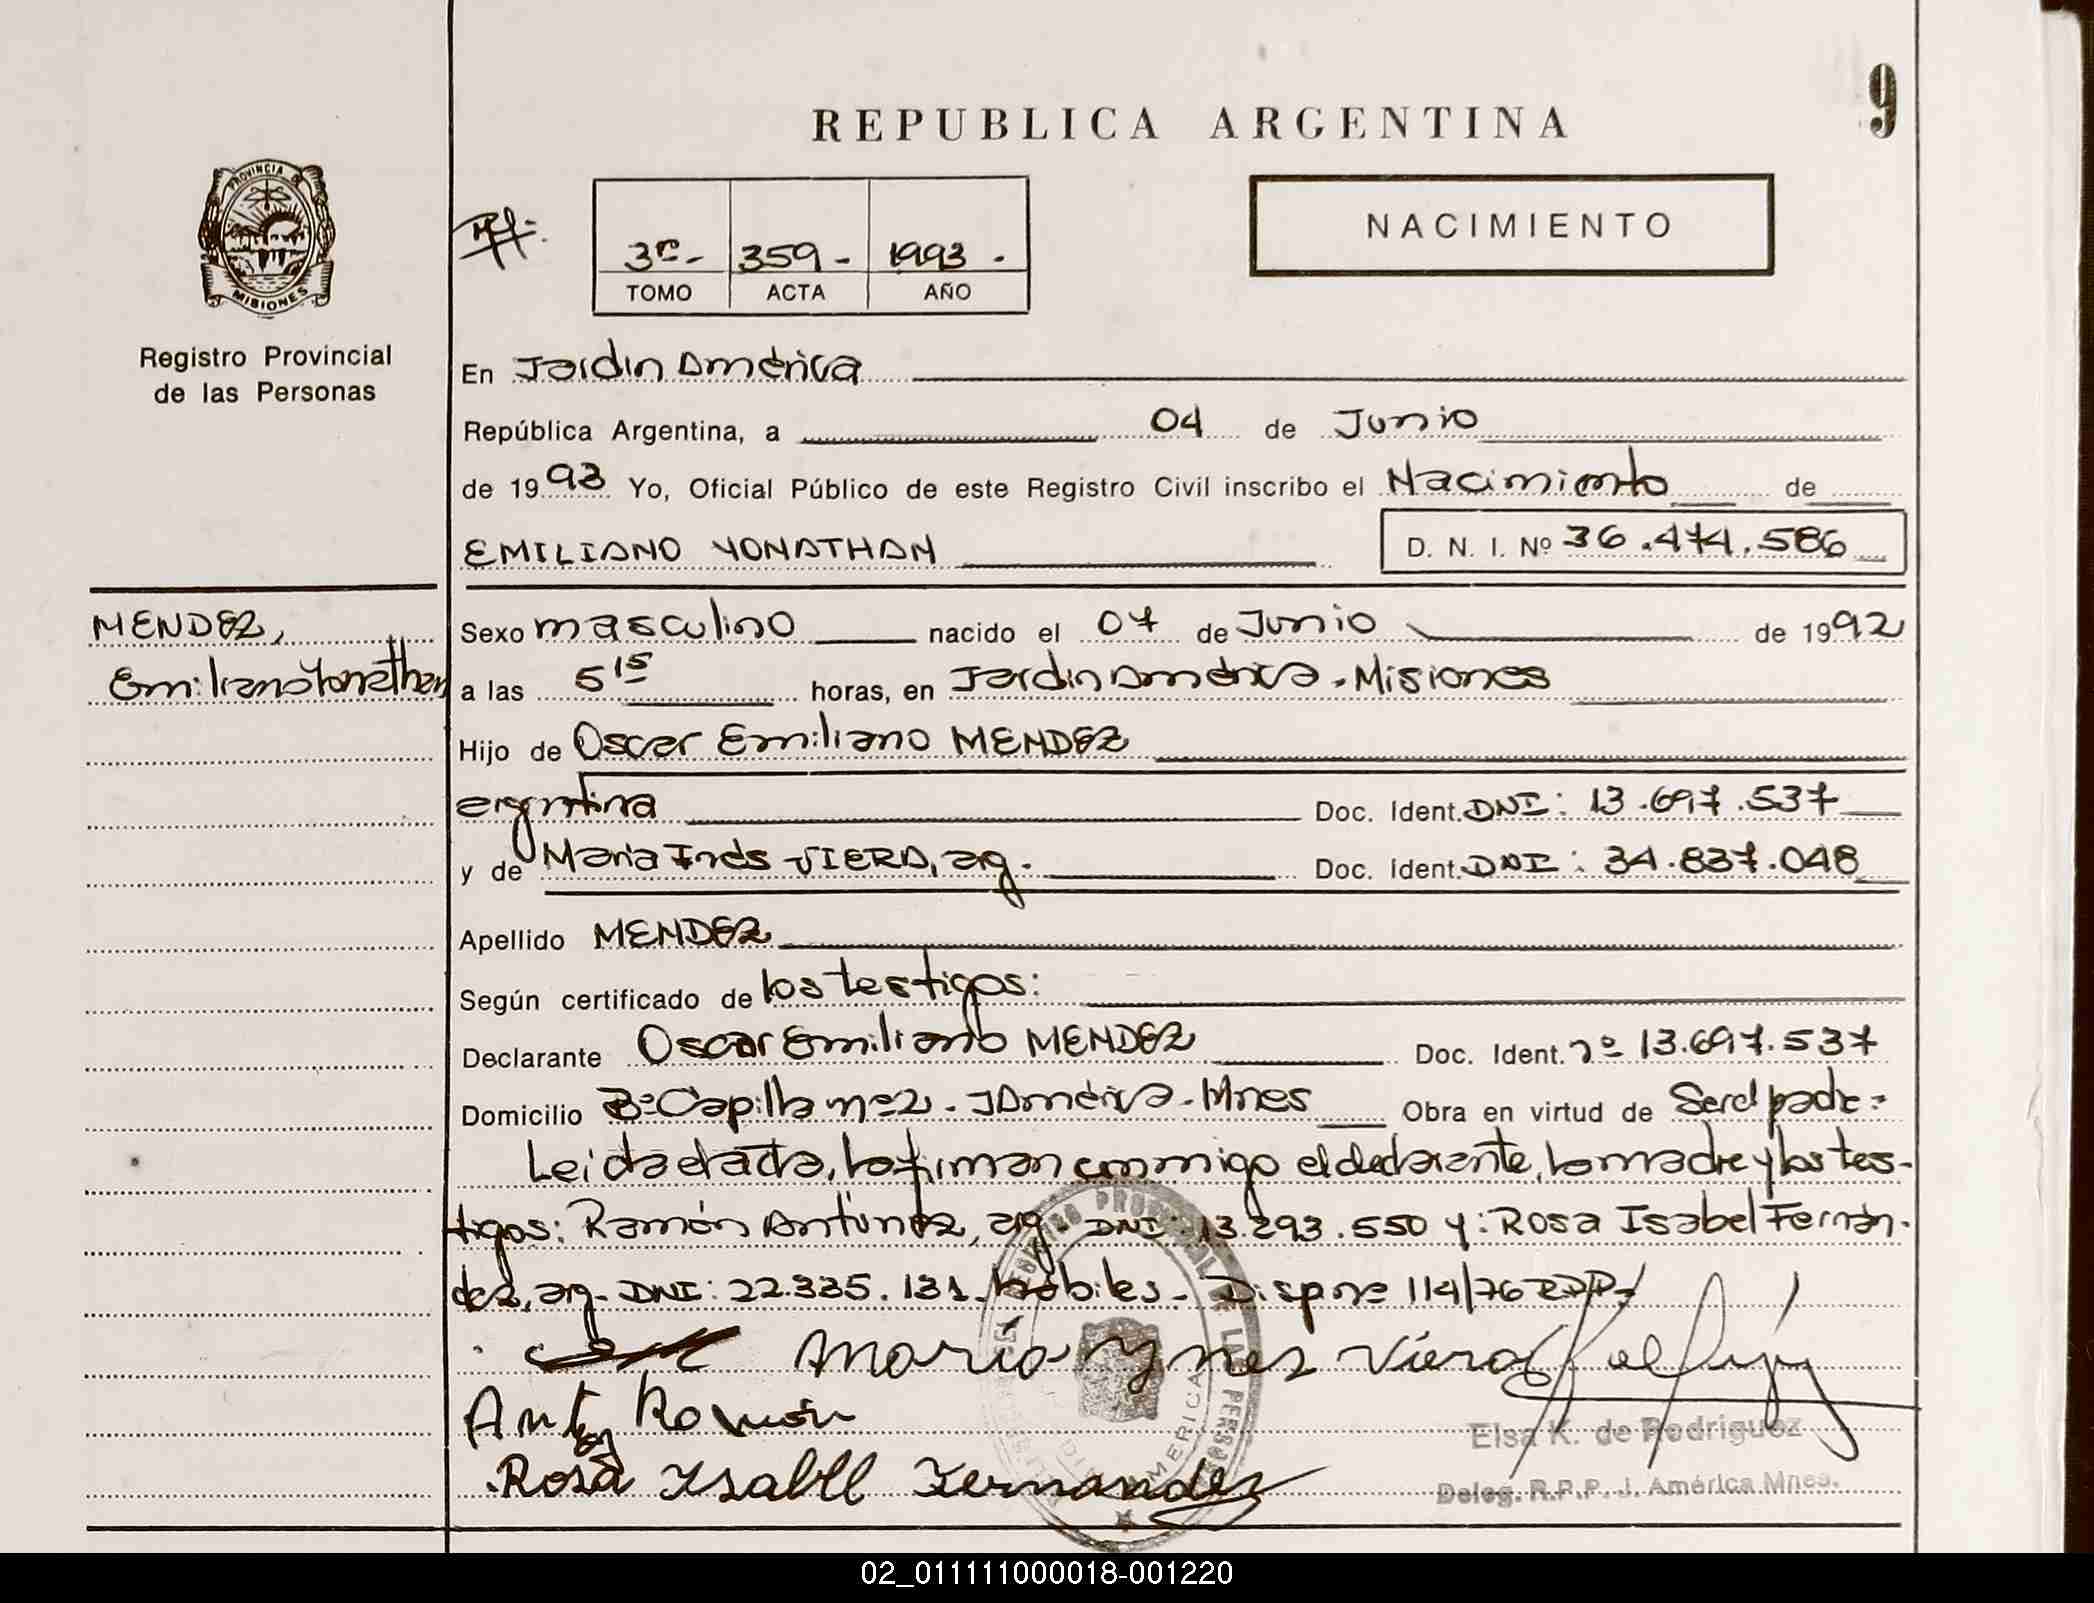 9
REPUBLICA ARGENTINA
PROVINCIA DE
MISIONES
NACIMIENTO
3º- 359- 1993.
TOMO ACTA AÑO
Registro Provincial
de las Personas
En Jardín América
República Argentina, a 04 de Junio
de 1993 Yo, Oficial Público de este Registro Civil inscribo el Nacimiento de
EMILIANO YONATHAN D. N. I. Nº 36.474.586
MENDEZ,
Emiliano Yonathan
Sexo masculino nacido el 07 de Junio de 1992
a las 5 15 horas, en Jardín América - Misiones
Hijo de Oscar Emiliano MENDEZ
argentina Doc. Ident. DNI: 13.697.537
y de María Inés VIERA, arg. Doc. Ident. DNI: 34.837.048
Apellido MENDEZ
Según certificado de los testigos:
Declarante Oscar Emiliano MENDEZ Doc. Ident. nº 13.697.537
Domicilio Bº Capilla nº2 - J América - Mnes Obra en virtud de Ser el padre=
Leida el acta, la firman conmigo el declarante, la madre y los tes-
tigos: Ramón Antunez, arg. DNI: 13.293.550 y: Rosa Isabel Fernán-
dez, arg- DNI: 22.335.131- hábiles- Dispone 114/76 RPP-/
Maria Ynez Viera
Ant ez Ramón
Rosa Isabel Fernandez
Elsa K. de Rodriguez
Deleg. R.P.P. J. América Mnes.
02_011111000018-001220